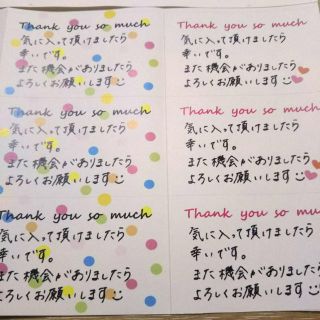 Thank you so much
気に入って頂けましたら
幸いです。
また機会がありましたら
よろしくお願いします
Thank you so much
気に入って頂けましたら
幸いです。
また機会がありましたら
よろしくお願いします
Thank you so much
気に入って頂けましたら
幸いです。
また機会がありましたら
よろしくお願いします
Thank you so much
気に入って頂けましたら
幸いです。
また機会がありましたら
よろしくお願いします
Thank you so much
気に入って頂けましたら
幸いです。
また機会がありましたら
よろしくお願いします
Thank you so much
気に入って頂けましたら
幸いです。
また機会がありましたら
よろしくお願いします